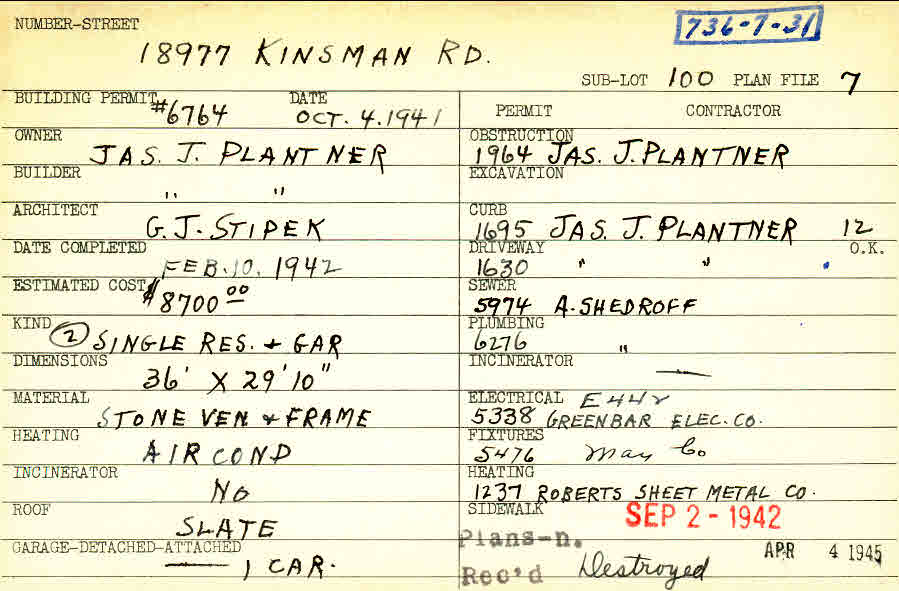 NUMBER-STREET
736-7-31
18977 KINSMAN RD.
SUB-LOT 100 PLAN FILE 7
BUILDING PERMIT #6764 DATE OCT. 4. 1941
OWNER JAS. J. PLANTNER
BUILDER " "
ARCHITECT G. J. STIPEK
DATE COMPLETED FEB. 10. 1942
ESTIMATED COST $8700 00
KIND (2) SINGLE RES. + GAR
DIMENSIONS 36' X 29'10"
MATERIAL STONE VEN. + FRAME
HEATING AIR COND
INCINERATOR NO
ROOF SLATE
GARAGE-DETACHED-ATTACHED — 1 CAR.
PERMIT CONTRACTOR
OBSTRUCTION 1964 JAS. J. PLANTNER
EXCAVATION
CURB 1695 JAS. J. PLANTNER 12
DRIVEWAY 1630 " " O.K.
SEWER 5974 A. SHEDROFF
PLUMBING 6276 "
INCINERATOR —
ELECTRICAL E442
5338 GREENBAR ELEC. CO.
FIXTURES 5476 May Co
HEATING 1237 ROBERTS SHEET METAL CO.
SIDEWALK SEP 2 - 1942
Plans-n.
Rec'd Destroyed APR 4 1945